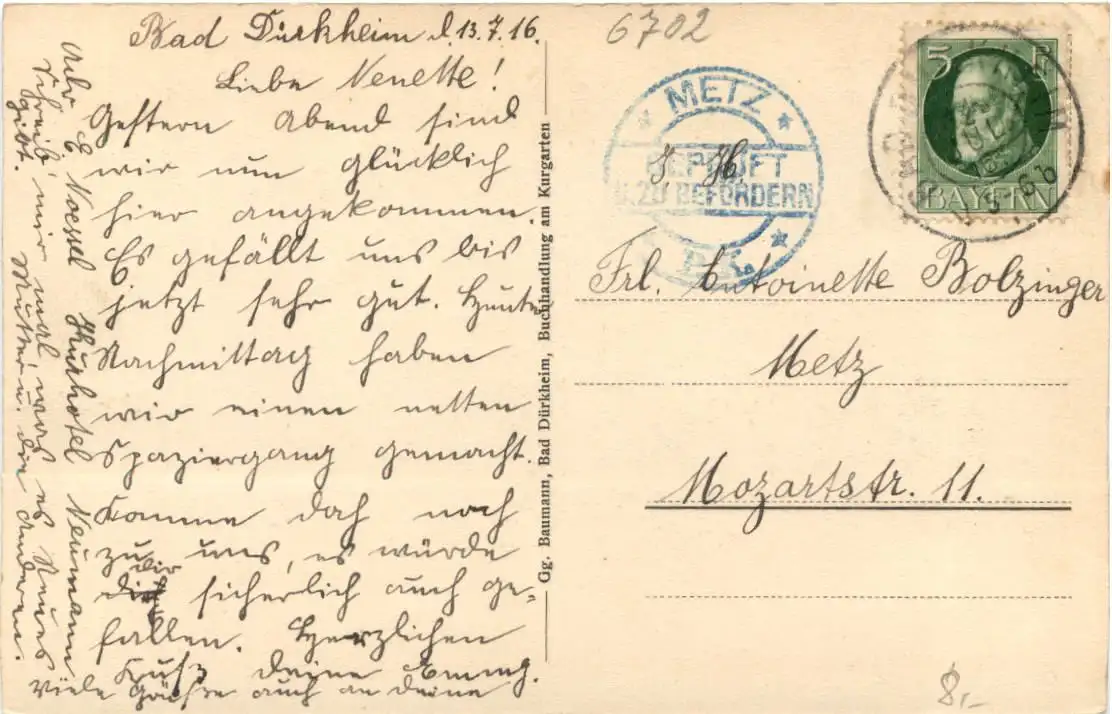 Bad Dürkheim d. 13.7.16.
Liebe Nenette!
Gestern Abend sind
wir nun glücklich
hier angekommen.
Es gefällt uns bis
jetzt sehr gut. Heute
Nachmittag haben
wir einen netten
Spaziergang gemacht.
Komme doch noch
zu uns, es würde
dir sicherlich auch ge-
fallen. Herzlichen
Kuß deine Emmy.
Viele Grüße auch an deine
Mutter u. die Anderen.
Schreib' mir mal was es Neues
gibt.
Noessel Kurhotel Neumann
Gg. Baumann, Bad Dürkheim, Buchhandlung am Kurgarten
6702
METZ
GEPRÜFT
U. ZU BEFÖRDERN
P.K.
5 P
BAYERN
Frl. Antoinette Bolzinger
Metz
Mozartstr. 11.
8,-